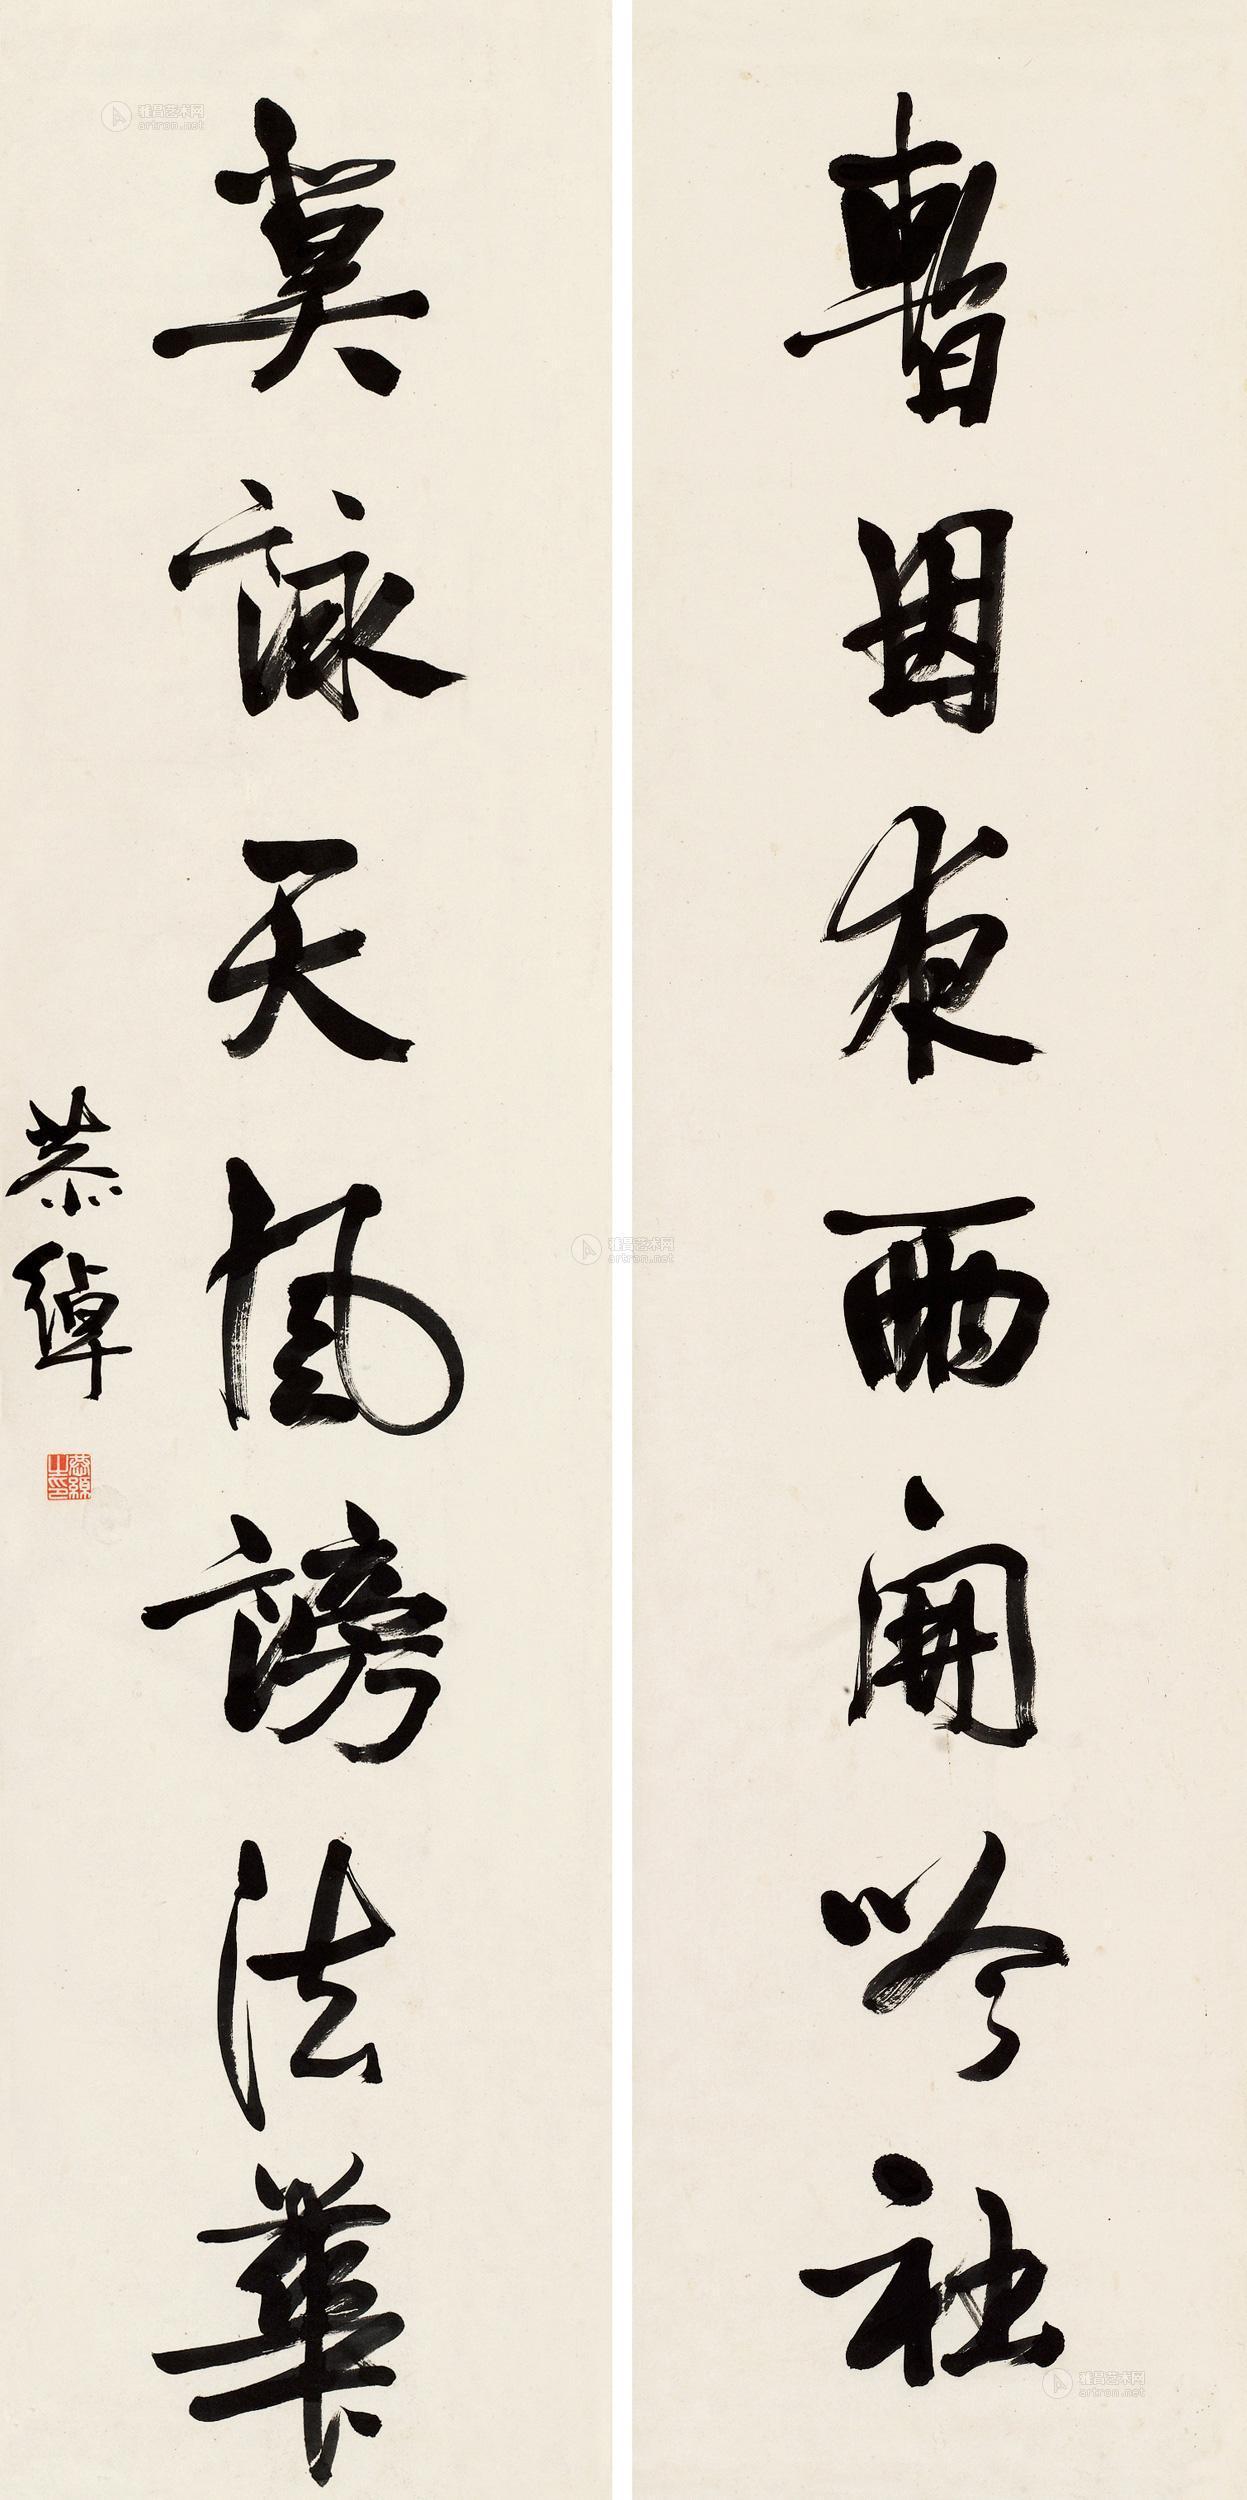 暫因夜雨開吟社
莫詠天風謗法華
恭綽
恭綽之印
雅昌艺术网
artron.net
雅昌艺术网
artron.net
雅昌艺术网
artron.net